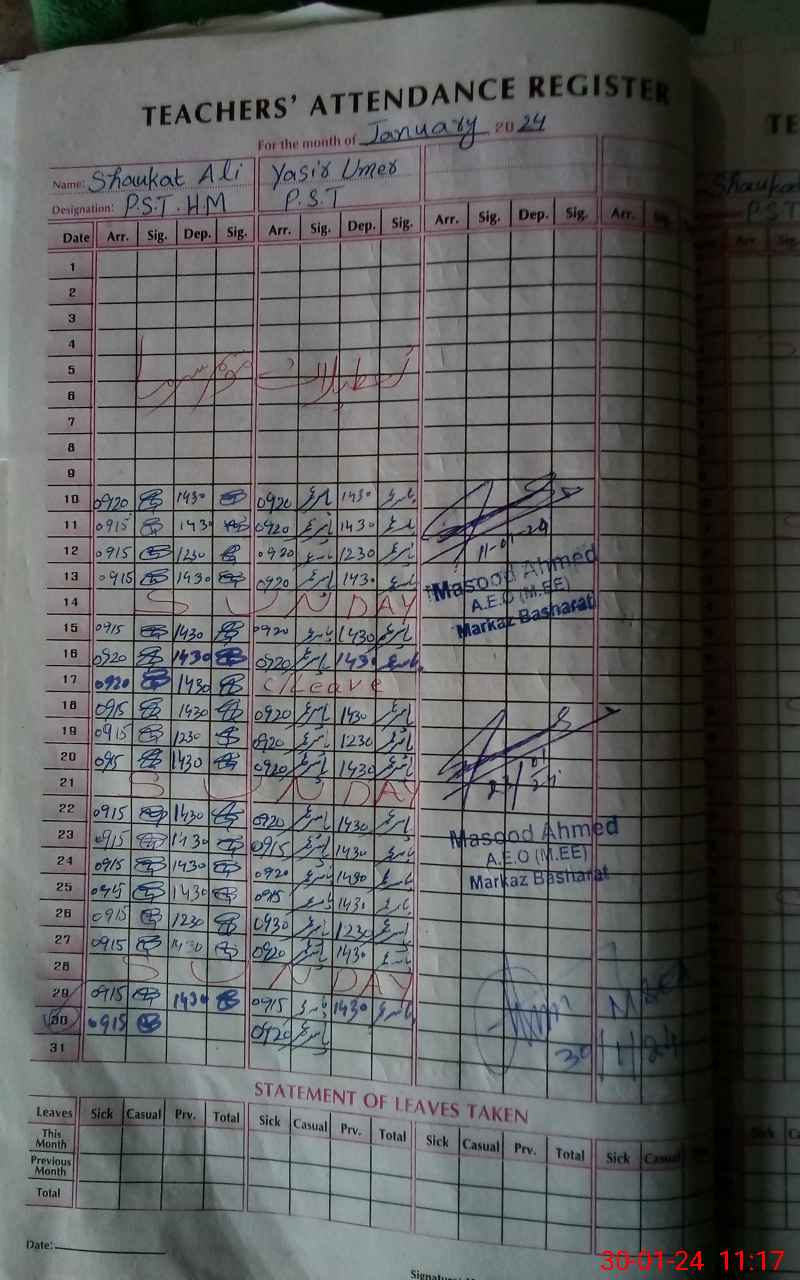 TEACHERS' ATTENDANCE REGISTER
For the month of January 2024
Name: Shaukat Ali Yasir Umer
Designation: P.S.T. HM P.S.T
Date Arr. Sig. Dep. Sig. Arr. Sig. Dep. Sig. Arr. Sig. Dep. Sig. Arr.
1
2
3
4
5
6
7
8
9
10 0920 1430 0920 1430
11 0915 1430 0920 1430
11-01-24
12 0915 1230 0920 1230
13 0915 1430 0920 1430
Masood Ahmed
A.E.O (M.EE)
Markaz Basharat
14 SUNDAY
15 0915 1430 0920 1430
16 0920 1430 0920 1430
17 0920 1430 C/Leave
18 0915 1430 0920 1430
19 0915 1230 0920 1230
20 0915 1430 0920 1430
21 SUNDAY
22 0915 1430 0920 1430
23 0915 1430 0915 1430
Masood Ahmed
A.E.O (M.EE)
Markaz Basharat
24 0915 1430 0920 1430
25 0915 1430 0915 1430
26 0915 1230 0930 1230
27 0915 1430 0920 1430
28 SUNDAY
29 0915 1430 0915 1430
30 0915 0920
30/1/24
31
STATEMENT OF LEAVES TAKEN
Leaves Sick Casual Prv. Total Sick Casual Prv. Total Sick Casual Prv. Total Sick Casual
This Month
Previous Month
Total
Date:
30-01-24 11:17